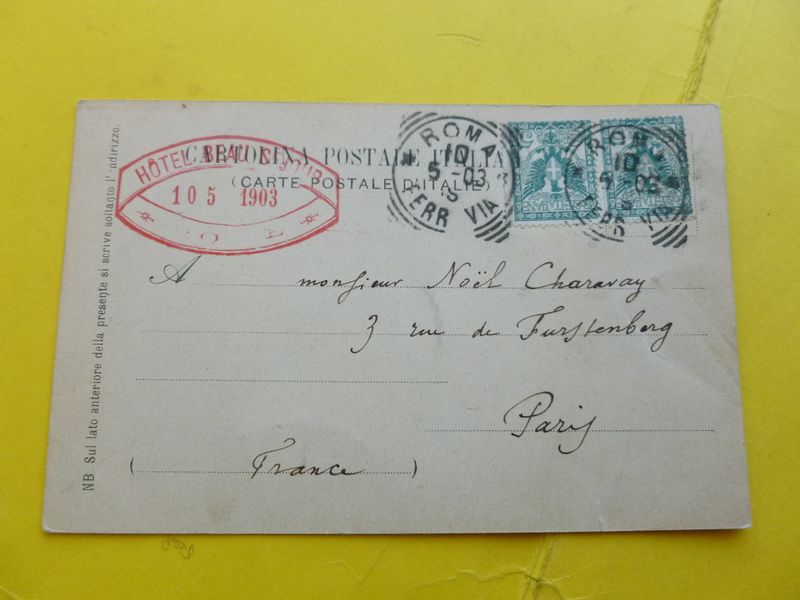 CARTOLINA POSTALE ITALIANA
(CARTE POSTALE D'ITALIE)
HÔTEL BEAU
10 5 1903
ROMA
10
5-03
FERROVIA
ROMA
10
5-03
FERROVIA
A monsieur Noël Charavay
3 rue de Furstenberg
Paris
( France )
NB Sul lato anteriore della presente si scrive soltanto l'indirizzo.